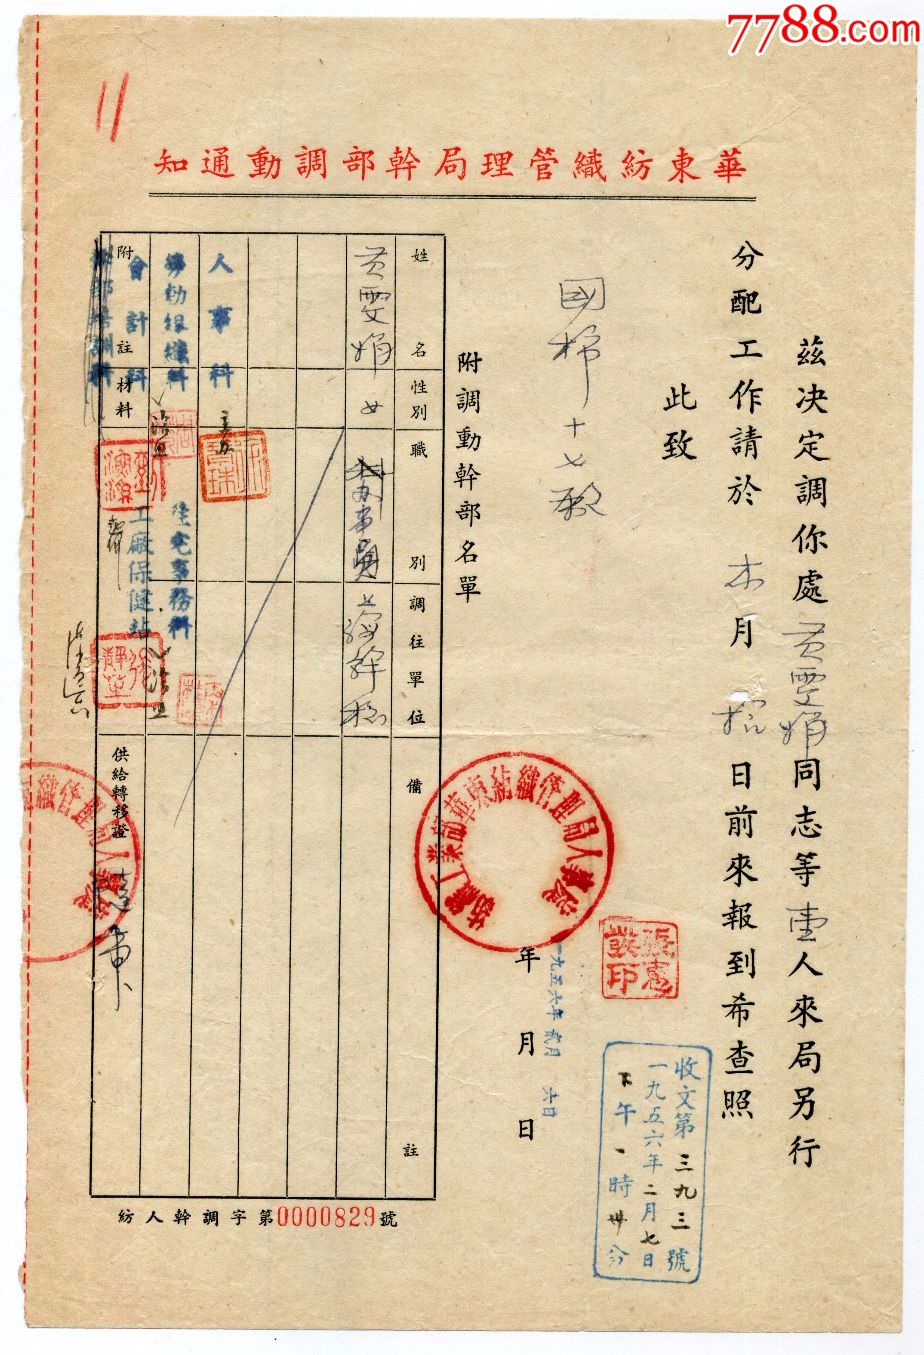 7788.com
11
華東紡織管理局幹部調動通知
茲決定調你處黃雯娟同志等壹人來局另行
分配工作請於本月拾日前來報到希查照
此致
國棉十七廠
附調動幹部名單
姓名
性別
職別
調往單位
備註
黃雯娟
女
办事員
人事科
會計科
工廠保健站
附註
材料
供給轉移證
一九五六年 貳月 六日
年月日
收文第三九三號
一九五六年二月七日
下午一時卅分
紡人幹調字第0000829號